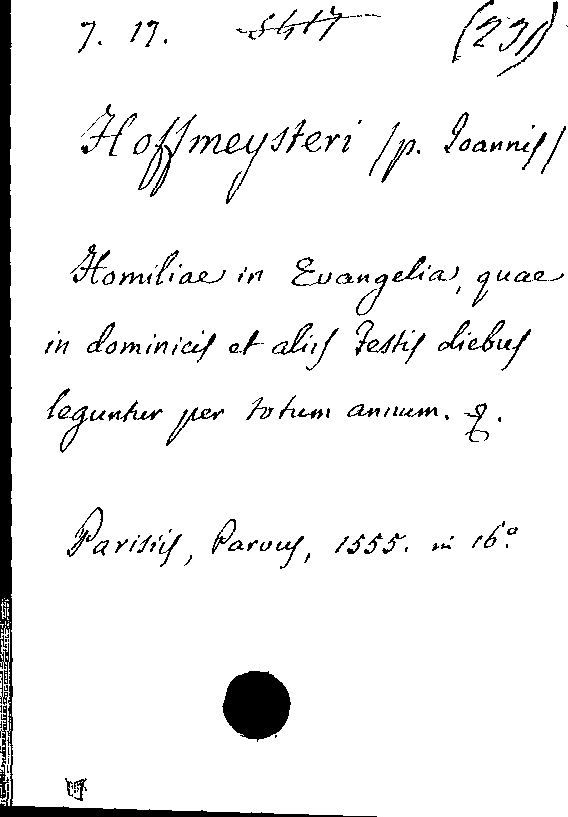 7. 17. (231)
Hoffmeysteri /p. Ioannis/
Homiliae in Evangelia, quae
in dominicis et aliis Festis diebus
leguntur per totum annum.
Parisiis, Parvus, 1555. in 16°